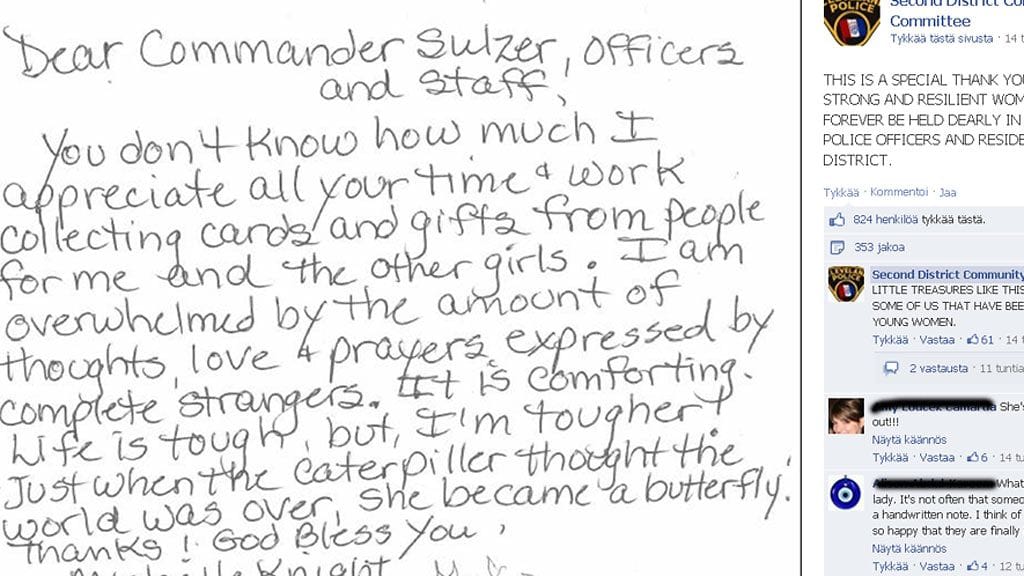 Dear Commander Sulzer, officers
and staff,
You don't know how much I
appreciate all your time & work
collecting cards and gifts from people
for me and the other girls. I am
overwhelmed by the amount of
thoughts, love & prayers expressed by
complete strangers. It is comforting.
Life is tough, but, I'm tougher!
Just when the caterpiller thought the
world was over, she became a butterfly!
Thanks! God Bless You,
Michelle Knight
POLICE
Second District Co
Committee
Tykkää tästä sivusta · 14 t
THIS IS A SPECIAL THANK YOU
STRONG AND RESILIENT WOM
FOREVER BE HELD DEARLY IN
POLICE OFFICERS AND RESIDE
DISTRICT.
Tykkää · Kommentoi · Jaa
824 henkilöä tykkää tästä.
353 jakoa
Second District Community
LITTLE TREASURES LIKE THIS
SOME OF US THAT HAVE BEE
YOUNG WOMEN.
Tykkää · Vastaa · 61 · 14 t
2 vastausta · 11 tuntia
She's
out!!!
Näytä käännös
Tykkää · Vastaa · 6 · 14 tu
What
lady. It's not often that someo
a handwritten note. I think of
so happy that they are finally
Näytä käännös
Tykkää · Vastaa · 4 · 12 tu